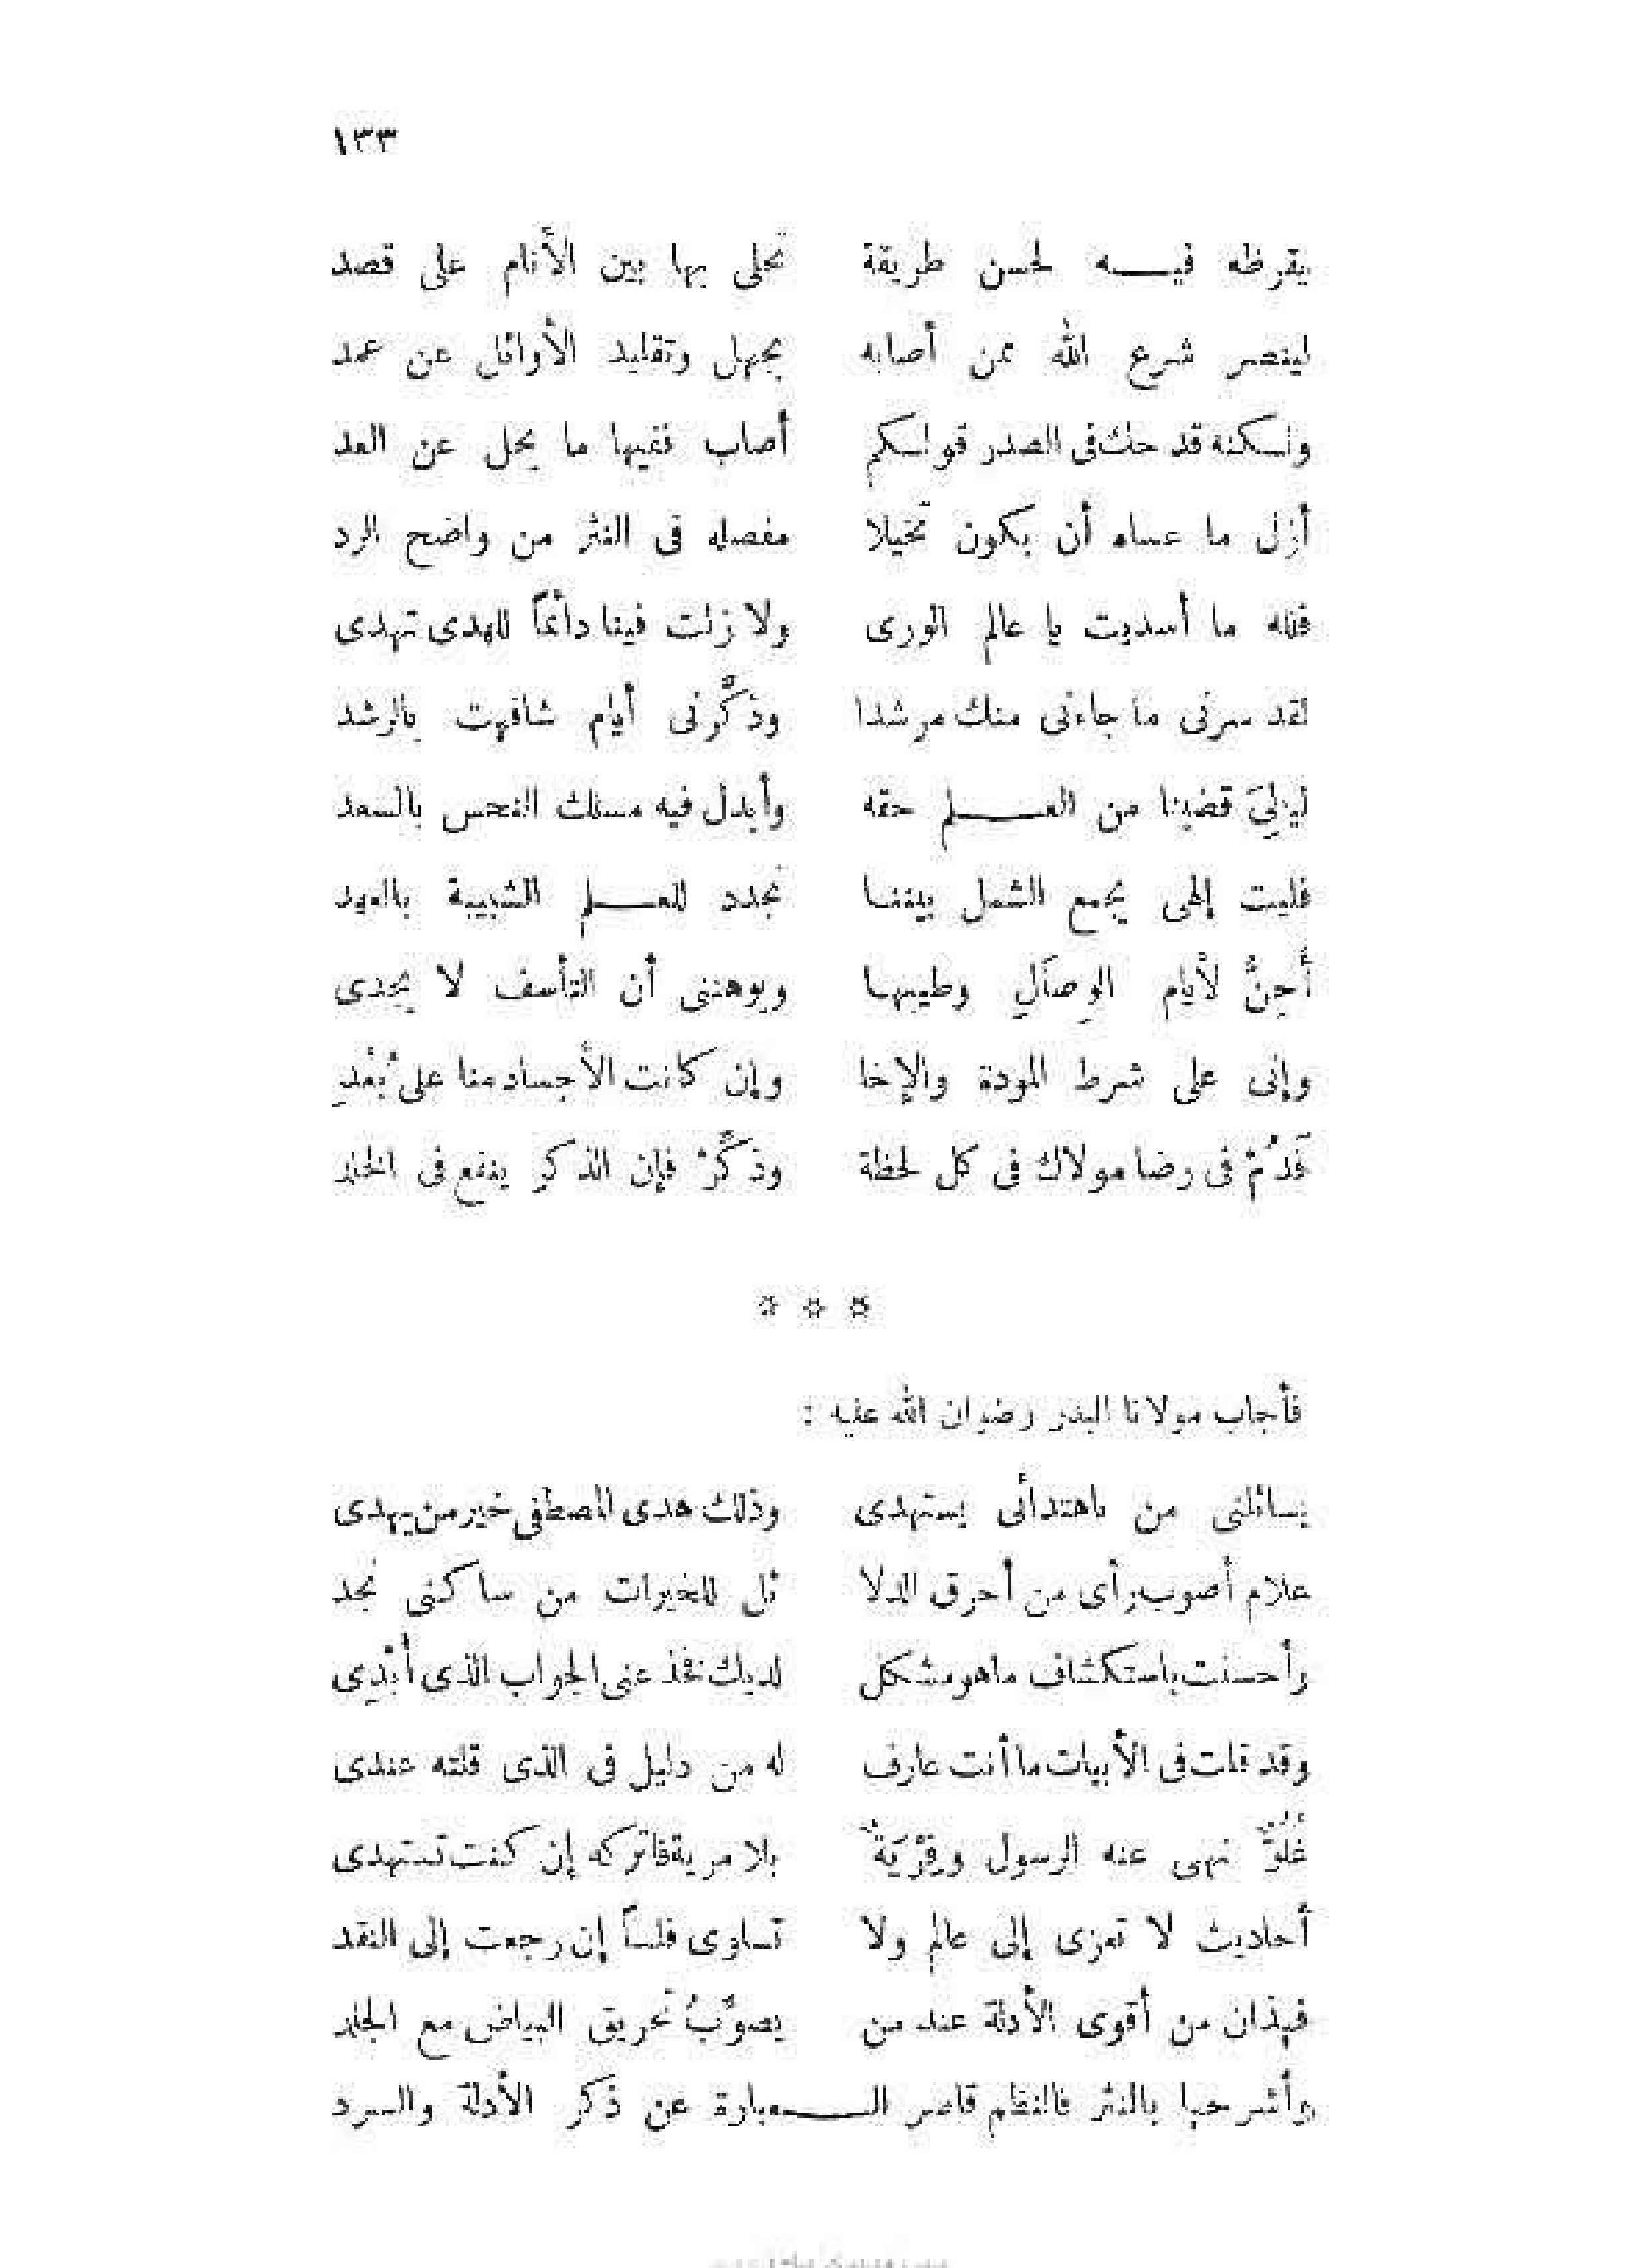 ١٣٣
يقرظه فيــه لحسن طريقة تحلى بها بين الأنام على قصد
لينصر شرع الله ممن أصابه بجهل وتقليد الأوائل عن عمد
ولـكنه قد حك فى الصدر قولـكم أصاب ففيها ما يجل عن العد
أزل ما عساه أن يكون تخيلا مفصله فى النثر من واضح الرد
فلله ما أسديت يا عالم الورى ولا زلت فينا دائماً للهدى تهدى
لقد سرنى ما جاءنى منك مرشدا وذكَّرنى أيام شافهت بالرشد
ليالِىَ قضينا من العــلم حقه وأبدل فيه مسلك النحس بالسعد
فليت إلهى يجمع الشمل بيننـا نجدد للعــلم الشبيبة بالعهد
أَحِنُّ لأيام الوِصَالِ وطيبهـا ويوهننى أن التأسف لا يجدى
وإنى على شرط المودة والإخا وإن كانت الأجساد منا على بُعْدِ
فَدُمْ فى رضا مولاك فى كل لحظة وذكِّرْ فإن الذكر ينفع فى الخلد
* * *
فأجاب مولانا البدر رضوان الله عليه :
يسائلنى من باهتدائى يستهدى وذلك هدى المصطفى خير من يهدى
علام أصوب رأى من أحرق الدلا ئل للخيرات من ساكنى نجد
وأحسنت باستكشاف ماهو مشكل لديك فخذ عنى الجواب الذى أُبْدِى
وقد قلت فى الأبيات ما أنت عارف له من دليل فى الذى قلته عندى
غُلُوٌّ نهى عنه الرسول وفِرْيَةٌ بلا مرية فاتركه إن كنت تستهدى
أحاديث لا تعزى إلى عالم ولا تساوى فلساً إن رجعت إلى النقد
فهذان من أقوى الأدلة عند من يصوِّبُ تحريق البياض مع الجلد
وأشرحها بالنثر فالنظم قاصر الــعبارة عن ذكر الأدلة والسرد